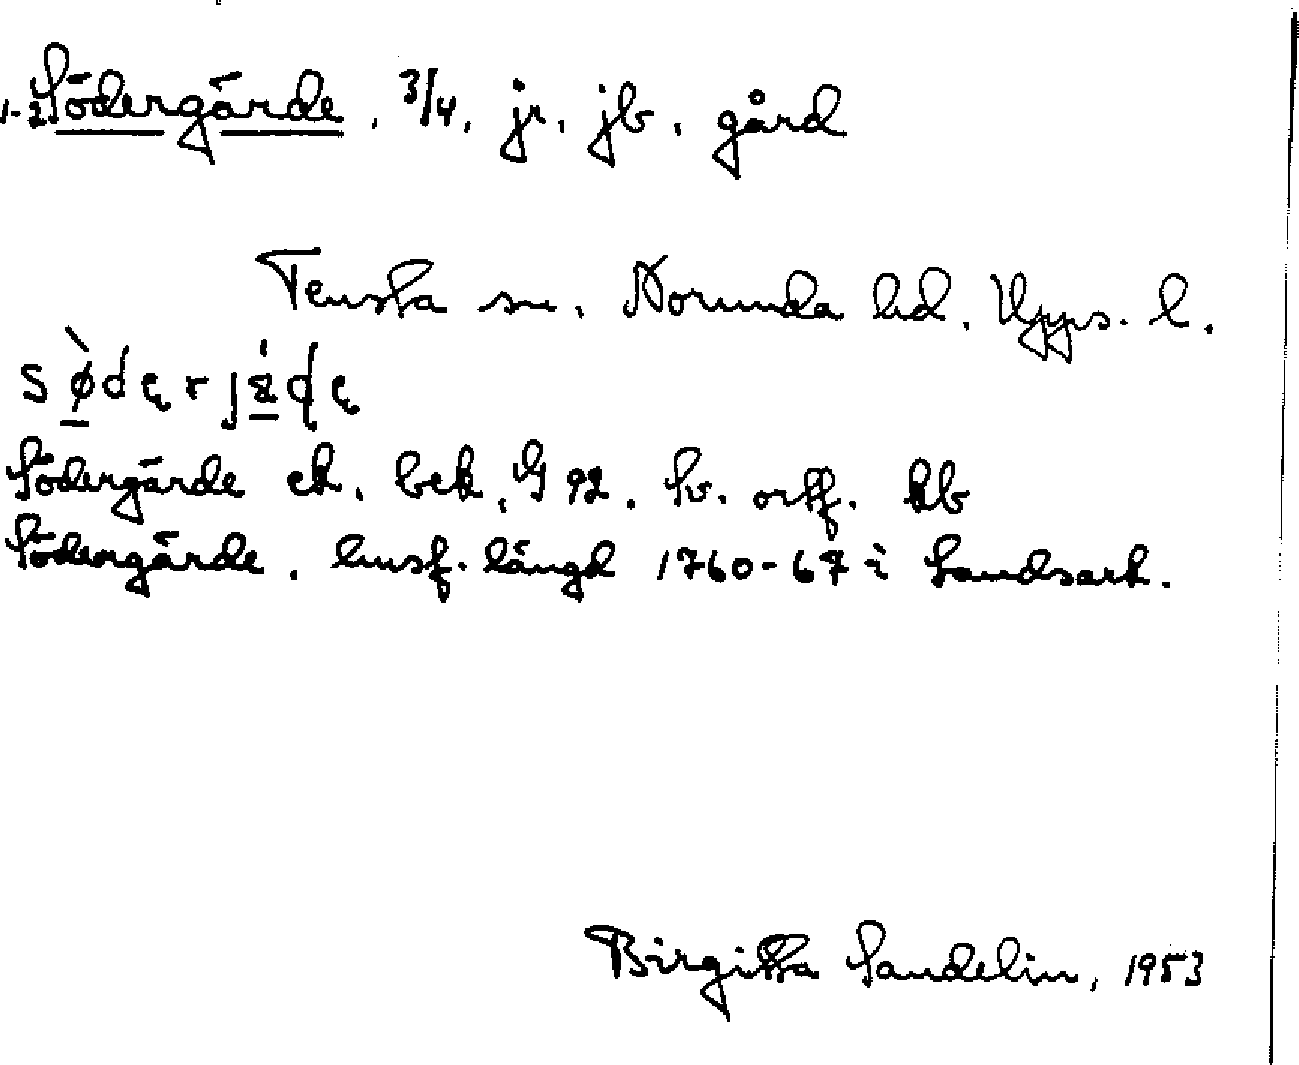 1-2 Södergärde, 3/4, jr, jb, gård
Tensta sn, Norunda hd, Upps. l.
sø̀dęrjä́ɖę
Södergärde ek. bek, G 92. Sv. ortf. kb
Södergärde. husf. längd 1760-67 i Landsark.
Birgitta Sandelin, 1953